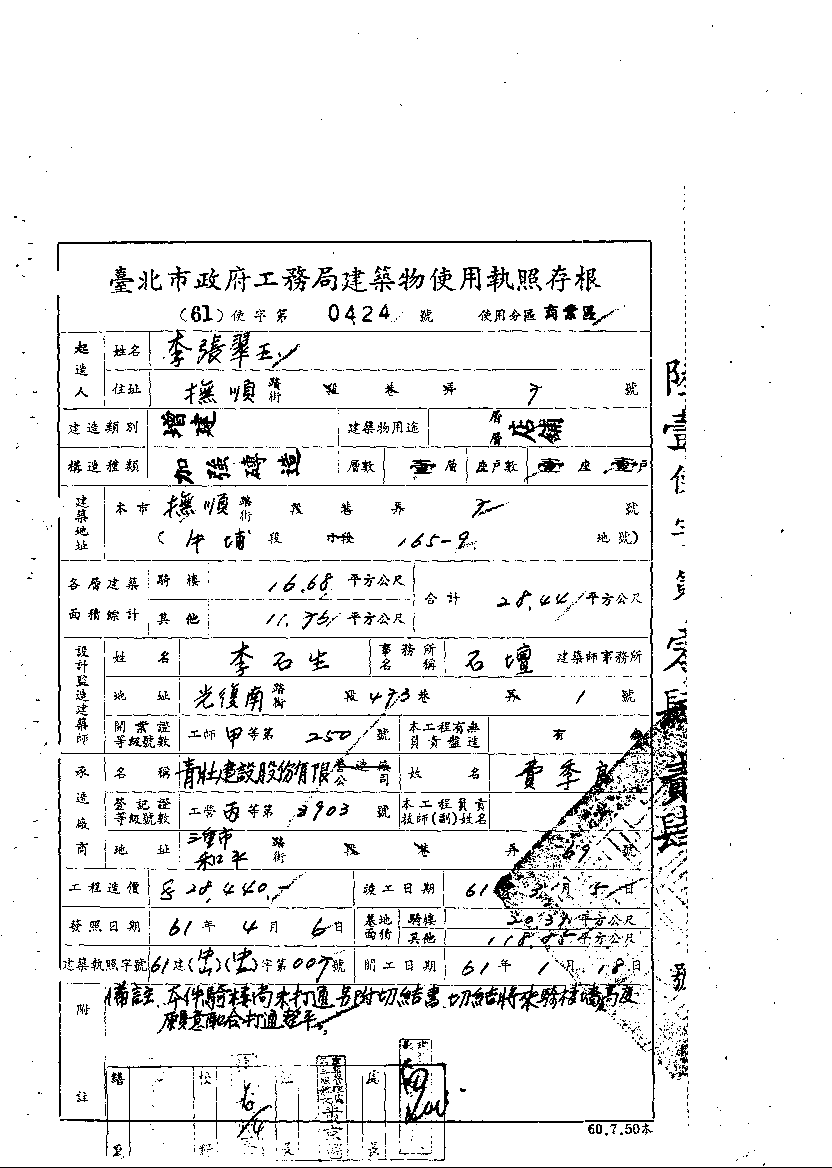 臺北市政府工務局建築物使用執照存根
(61)使字第 0424 號 使用分區 商業區
起造人 姓名 李張翠玉
住址 撫順 路街 段 巷 弄 號
建造類別 增建 建築物用途 層層 店鋪
構造種類 加強磚造 層數 壹層 座戶數 壹座 壹戶
建築地址 本市 撫順 路街 段 巷 弄 號
( 牛埔 段 小段 165-9 地號)
各層建築面積綜計 騎樓 16.68 平方公尺 合計 28.44 平方公尺
其他 11.76 平方公尺
設計監造建築師 姓名 李石生 事務所名稱 石壇 建築師事務所
地址 光復南 路街 段 473 巷 弄 1 號
開業證等級號數 工師 甲 等第 250 號 本工程有無負責監造 有
承造廠商 名稱 青壯建設股份有限公司 姓名 費季
登記證等級號數 工營 丙 等第 3903 號 本工程負責技師(副)姓名
地址 三重市和平 路街 段 巷 弄 69 號
工程造價 28,440.- 竣工日期 61年 3月 5日
發照日期 61年 4月 6日 基地面積 騎樓 平方公尺
其他 118.85 平方公尺
建築執照字號 61建( )( )字第007號 開工日期 61年 1月 18日
附註 備註:本件騎樓尚未打通另附切結書,切結將來騎樓高度
願意配合打通整平。
60.7.50本
陸壹使字第零肆貳肆號